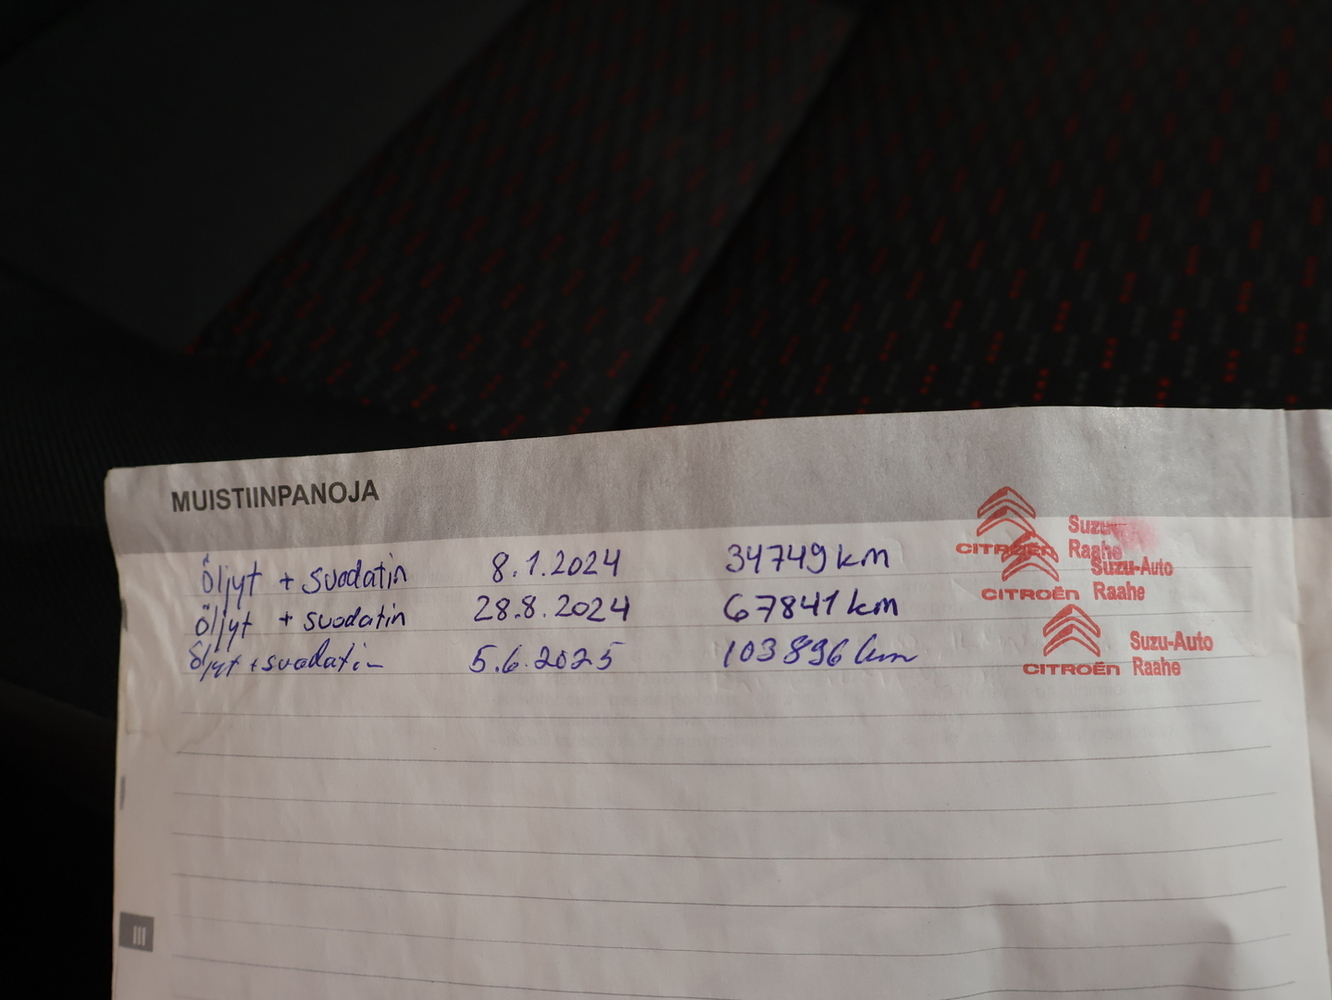 MUISTIINPANOJA
Öljyt + suodatin 8.1.2024 34749 km CITROËN Suzu- Raahe
öljyt + suodatin 28.8.2024 67841 km CITROËN Suzu-Auto Raahe
öljyt + suodatin 5.6.2025 103896 km CITROËN Suzu-Auto Raahe
III